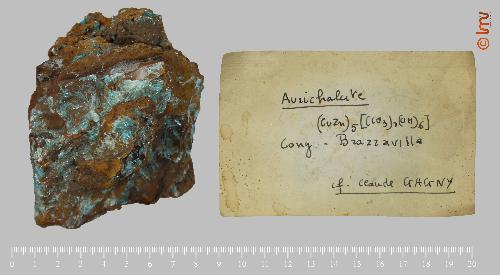 Aurichalcite
(CuZn)5[(CO3)2(OH)6]
Congo - Brazzaville
cf. Claude GAGNY
© lmv
0 1 2 3 4 5 6 7 8 9 10 11 12 13 14 15 16 17 18 19 20